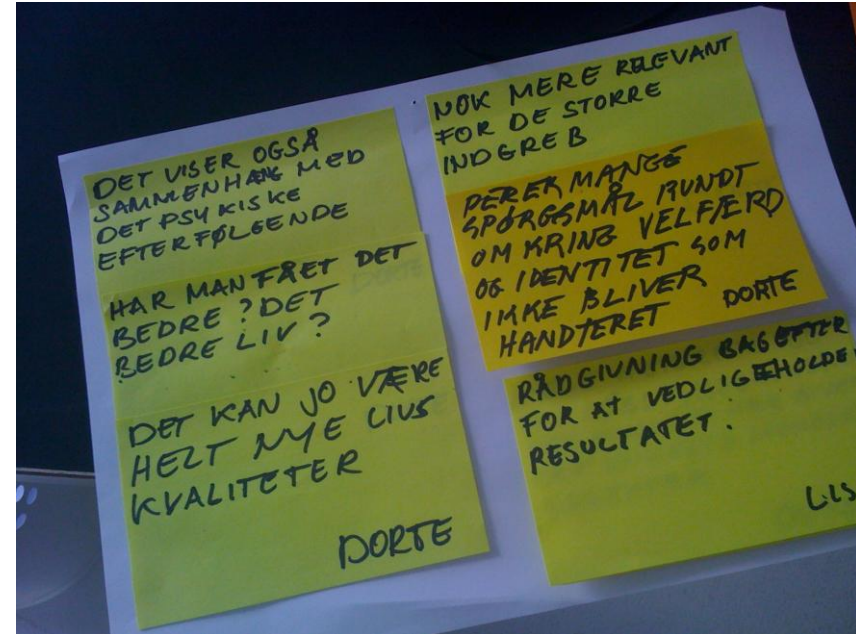 DET VISER OGSÅ
SAMMENHÆNG MED
DET PSYKISKE
EFTERFØLGENDE
HAR MAN FÅET DET
BEDRE? DET
BEDRE LIV?
DET KAN JO VÆRE
HELT NYE LIVS
KVALITETER
DORTE
NOK MERE RELEVANT
FOR DE STØRRE
INDGREB
DER ER MANGE
SPØRGSMÅL RUNDT
OM KRING VELFÆRD
OG IDENTITET SOM
IKKE BLIVER
HANDTERET DORTE
RÅDGIVNING BAGEFTER
FOR AT VEDLIGEHOLDE
RESULTATET.
LIS